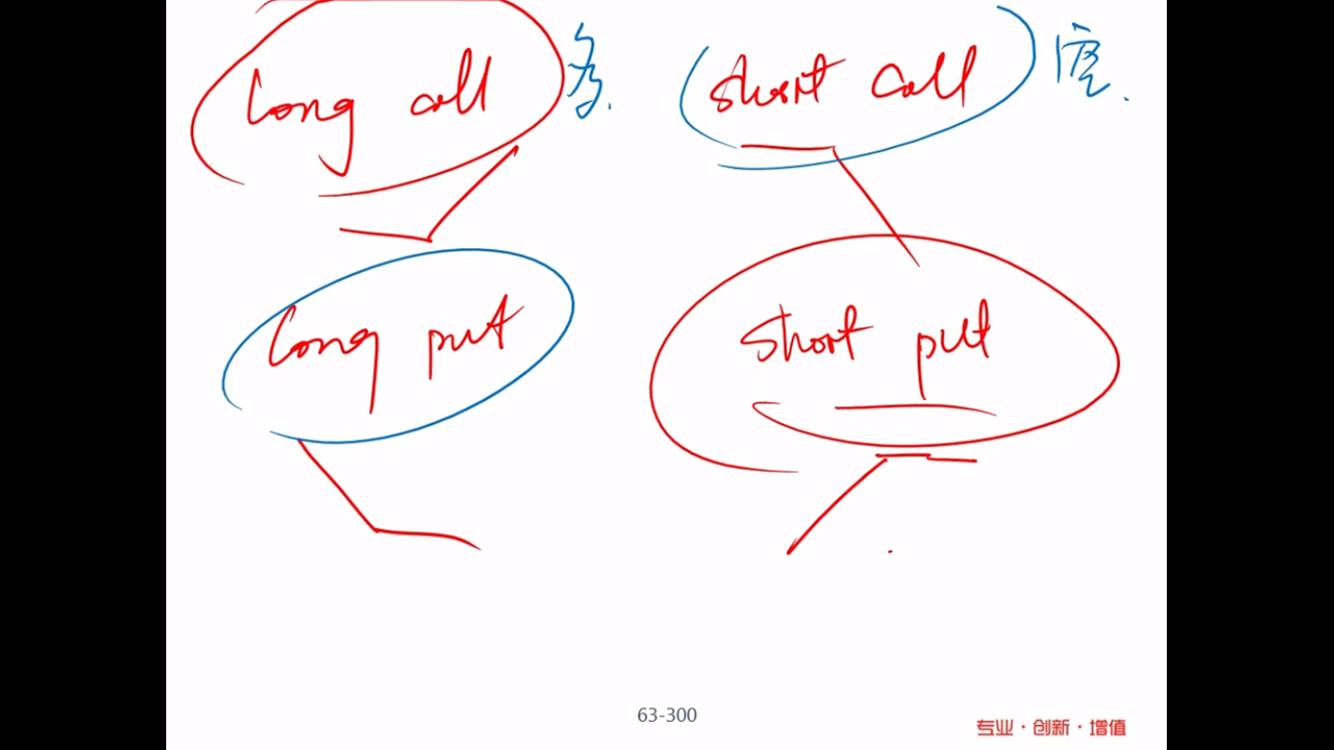 long call 多.
short call
long put
short put
63-300
专业·创新·增值